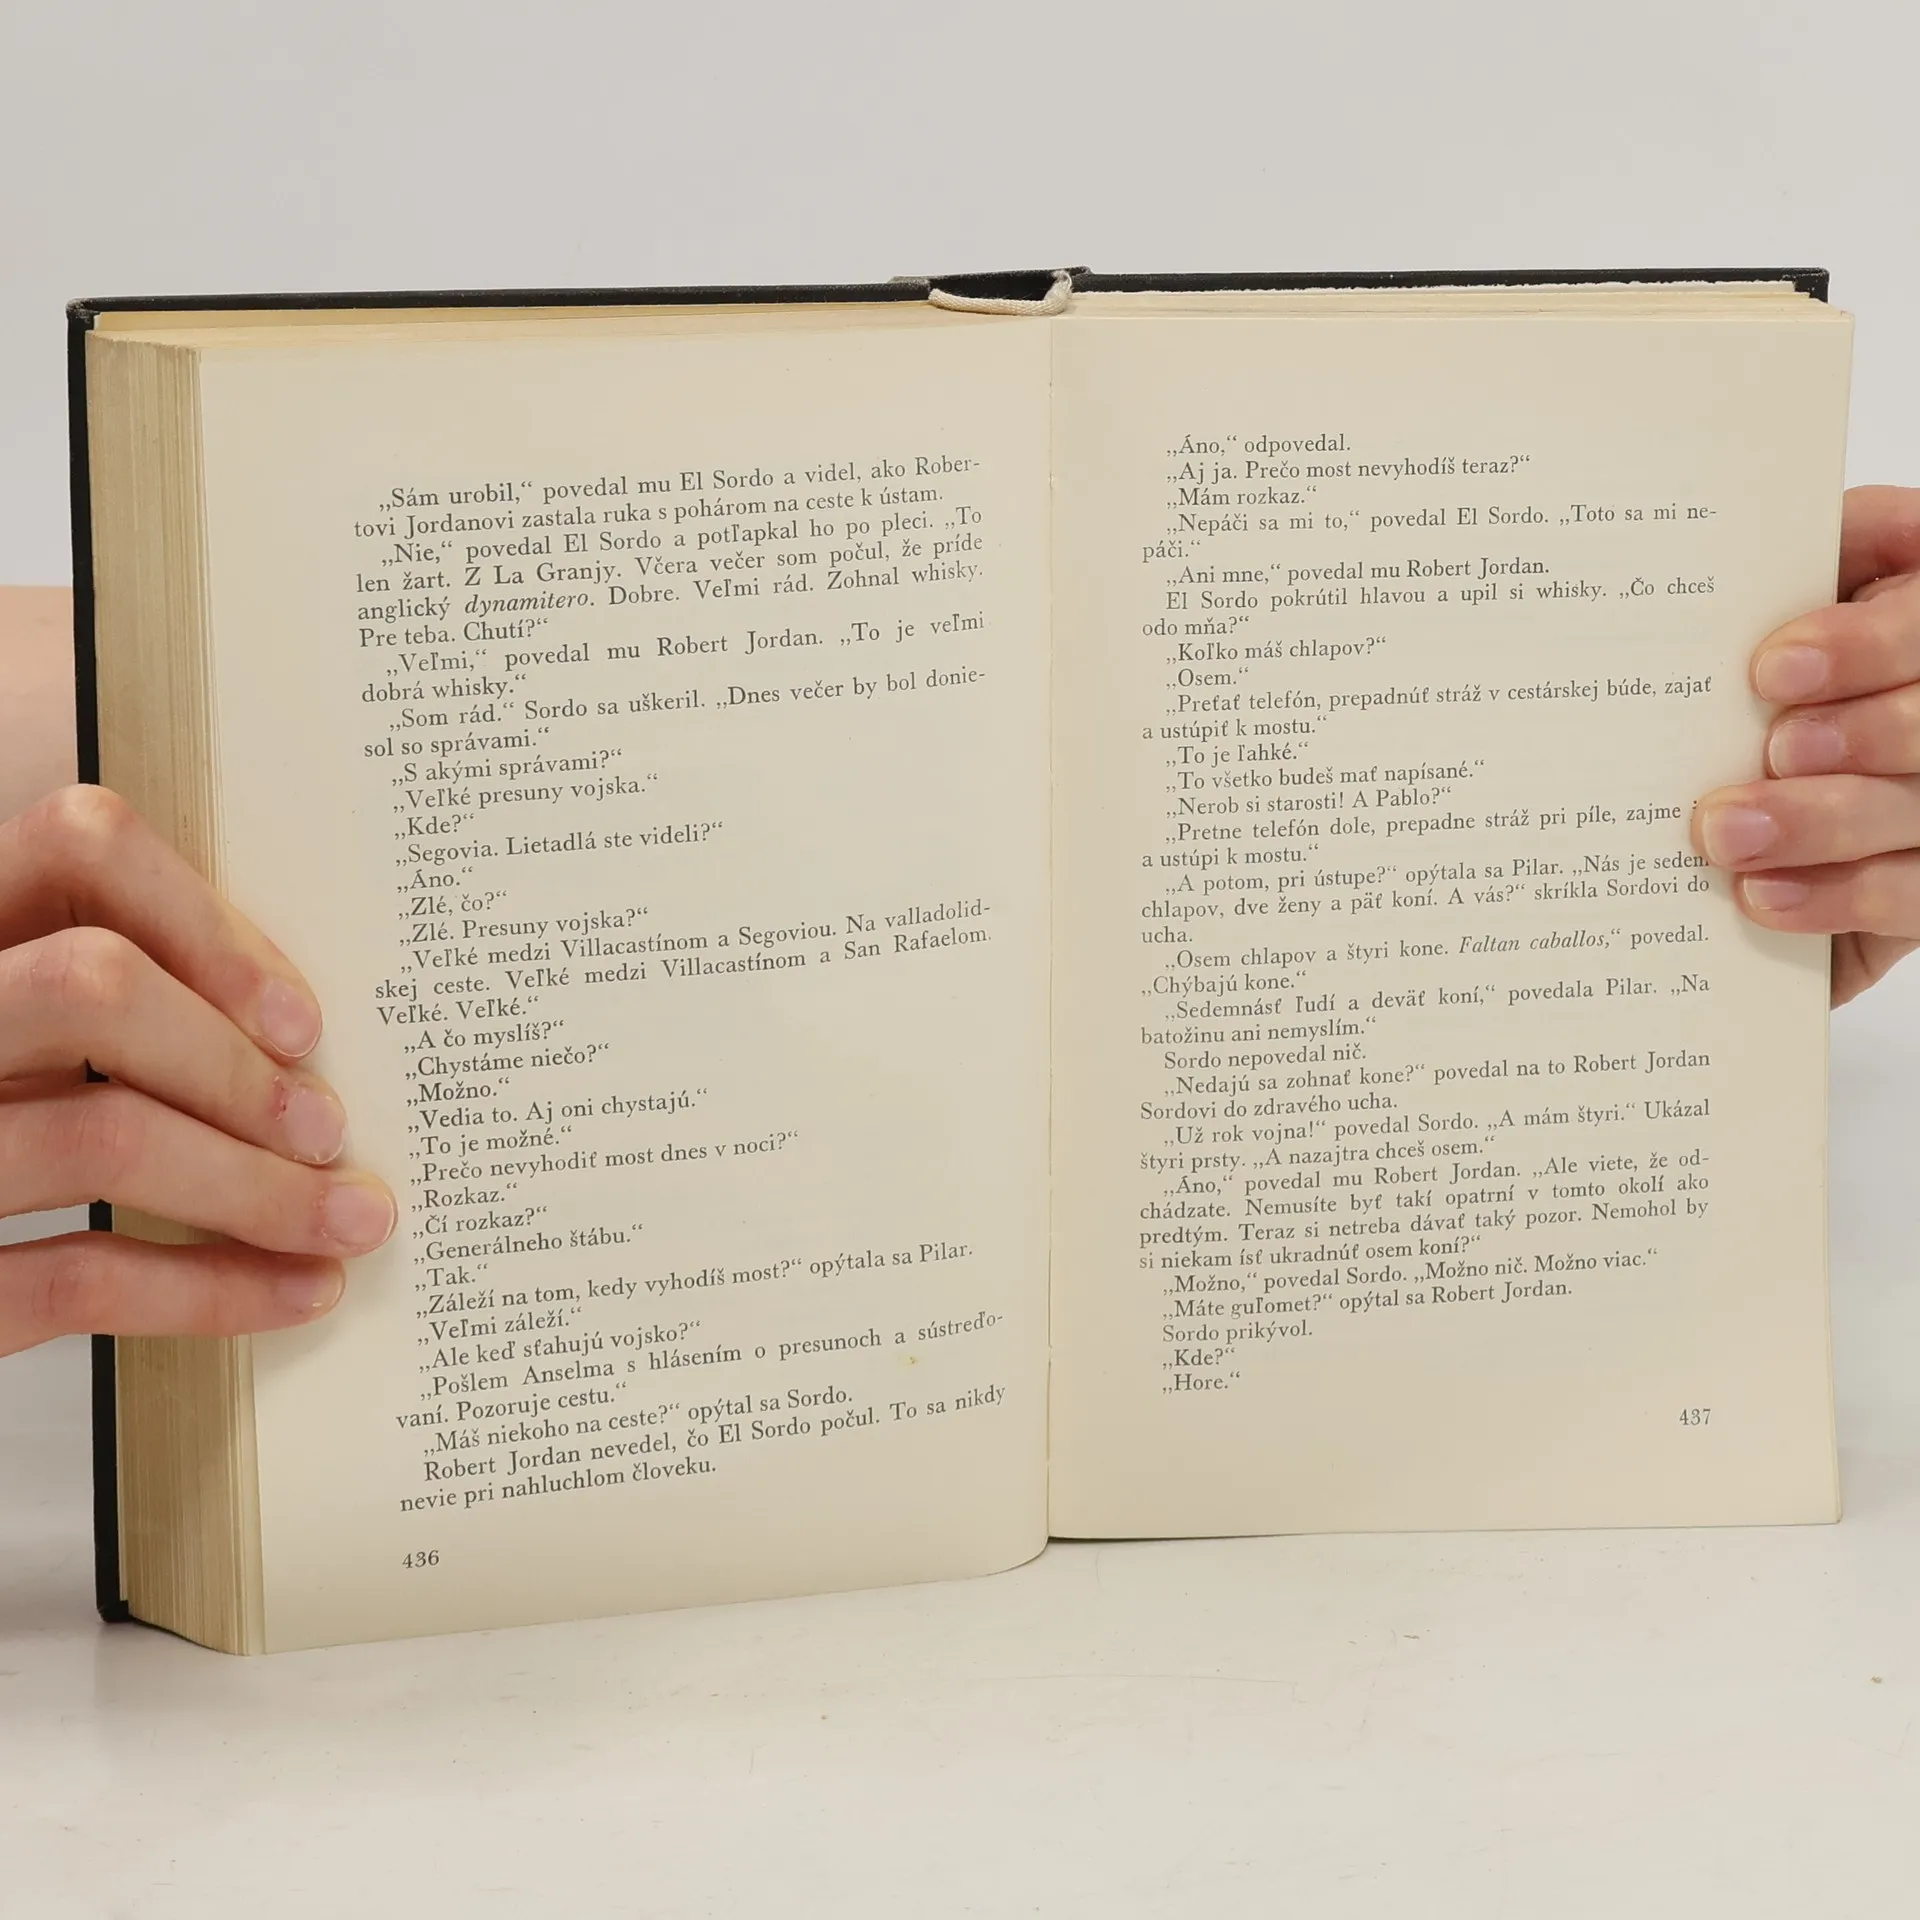 „Sám urobil,“ povedal mu El Sordo a videl, ako Rober-
tovi Jordanovi zastala ruka s pohárom na ceste k ústam.
„Nie,“ povedal El Sordo a potľapkal ho po pleci. „To
len žart. Z La Granjy. Včera večer som počul, že príde
anglický dynamitero. Dobre. Veľmi rád. Zohnal whisky.
Pre teba. Chutí?“
„Veľmi,“ povedal mu Robert Jordan. „To je veľmi
dobrá whisky.“
„Som rád.“ Sordo sa uškeril. „Dnes večer by bol donie-
sol so správami.“
„S akými správami?“
„Veľké presuny vojska.“
„Kde?“
„Segovia. Lietadlá ste videli?“
„Áno.“
„Zlé, čo?“
„Zlé. Presuny vojska?“
„Veľké medzi Villacastínom a Segoviou. Na valladolid-
skej ceste. Veľké medzi Villacastínom a San Rafaelom.
Veľké. Veľké.“
„A čo myslíš?“
„Chystáme niečo?“
„Možno.“
„Vedia to. Aj oni chystajú.“
„To je možné.“
„Prečo nevyhodiť most dnes v noci?“
„Rozkaz.“
„Čí rozkaz?“
„Generálneho štábu.“
„Tak.“
„Záleží na tom, kedy vyhodíš most?“ opýtala sa Pilar.
„Veľmi záleží.“
„Ale keď sťahujú vojsko?“
„Pošlem Anselma s hlásením o presunoch a sústreďo-
vaní. Pozoruje cestu.“
„Máš niekoho na ceste?“ opýtal sa Sordo.
Robert Jordan nevedel, čo El Sordo počul. To sa nikdy
nevie pri nahluchlom človeku.
436
„Áno,“ odpovedal.
„Aj ja. Prečo most nevyhodíš teraz?“
„Mám rozkaz.“
„Nepáči sa mi to,“ povedal El Sordo. „Toto sa mi ne-
páči.“
„Ani mne,“ povedal mu Robert Jordan.
El Sordo pokrútil hlavou a upil si whisky. „Čo chceš
odo mňa?“
„Koľko máš chlapov?“
„Osem.“
„Preťať telefón, prepadnúť stráž v cestárskej búde, zajať
a ustúpiť k mostu.“
„To je ľahké.“
„To všetko budeš mať napísané.“
„Nerob si starosti! A Pablo?“
„Pretne telefón dole, prepadne stráž pri píle, zajme
a ustúpi k mostu.“
„A potom, pri ústupe?“ opýtala sa Pilar. „Nás je sedem
chlapov, dve ženy a päť koní. A vás?“ skríkla Sordovi do
ucha.
„Osem chlapov a štyri kone. Faltan caballos,“ povedal.
„Chýbajú kone.“
„Sedemnásť ľudí a deväť koní,“ povedala Pilar. „Na
batožinu ani nemyslím.“
Sordo nepovedal nič.
„Nedajú sa zohnať kone?“ povedal na to Robert Jordan
Sordovi do zdravého ucha.
„Už rok vojna!“ povedal Sordo. „A mám štyri.“ Ukázal
štyri prsty. „A nazajtra chceš osem.“
„Áno,“ povedal mu Robert Jordan. „Ale viete, že od-
chádzate. Nemusíte byť takí opatrní v tomto okolí ako
predtým. Teraz si netreba dávať taký pozor. Nemohol by
si niekam ísť ukradnúť osem koní?“
„Možno,“ povedal Sordo. „Možno nič. Možno viac.“
„Máte guľomet?“ opýtal sa Robert Jordan.
Sordo prikývol.
„Kde?“
„Hore.“
437